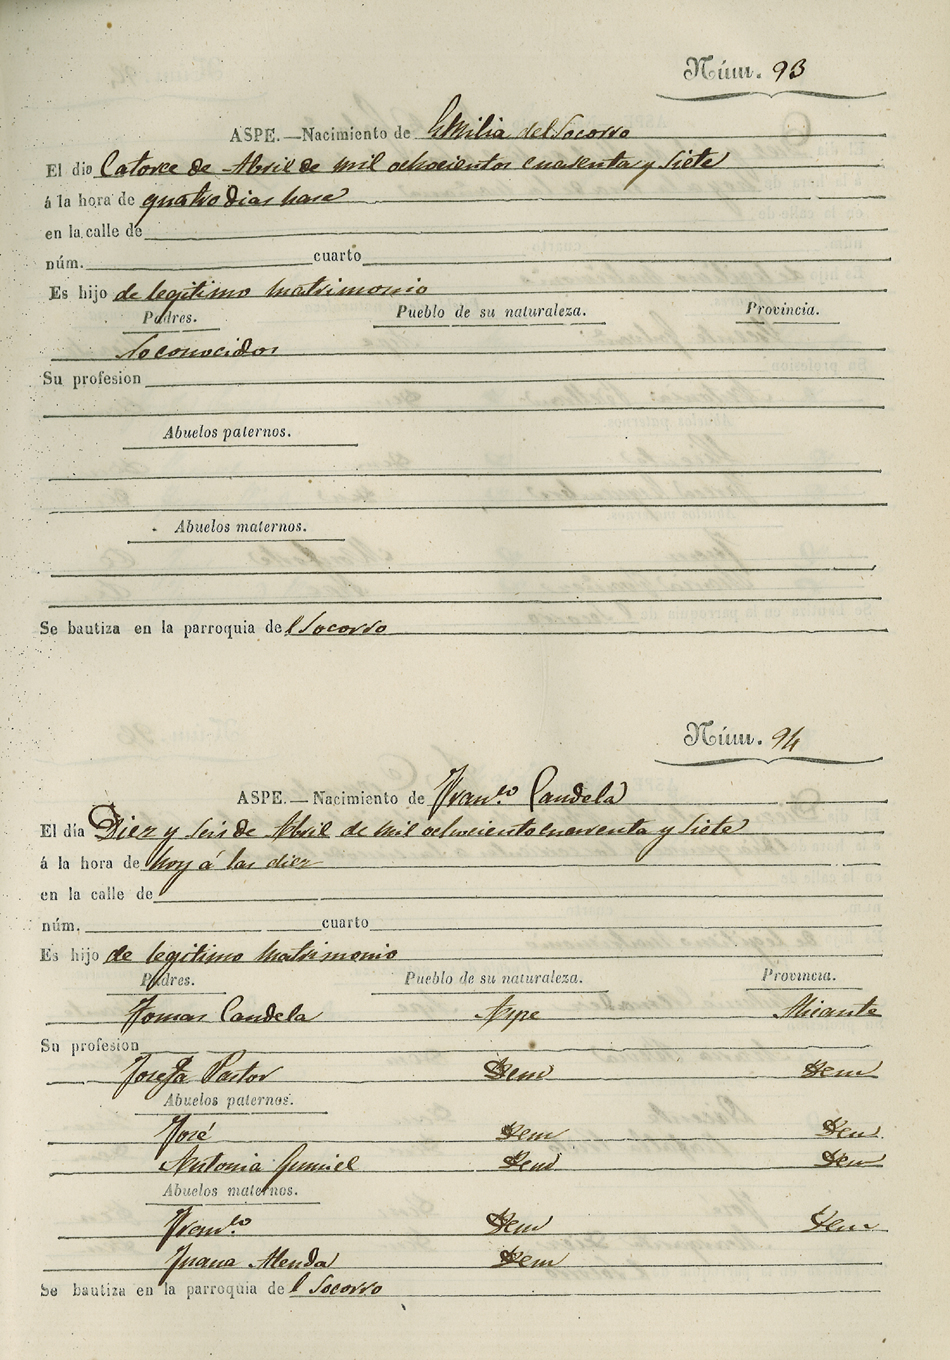 Núm. 93
ASPE.—Nacimiento de Emilia del Socorro
El dia Catorce de Abril de mil ochocientos cuarenta y siete
á la hora de quatro dias hace
en la calle de
núm. cuarto
Es hijo de legitimo matrimonio
Padres. Pueblo de su naturaleza. Provincia.
Noconocidos
Su profesion
Abuelos paternos.
Abuelos maternos.
Se bautiza en la parroquia del Socorro
Núm. 94
ASPE.—Nacimiento de Fran.co Candela
El día Diez y seis de Abril de mil ochociento cuarenta y siete
á la hora de hoy á las diez
en la calle de
núm. cuarto
Es hijo de legitimo matrimonio
Padres. Pueblo de su naturaleza. Provincia.
Tomas Candela Aspe Alicante
Su profesion
Josefa Pastor Idem Idem
Abuelos paternos.
José Idem Idem
Antonia Gumiel Idem Idem
Abuelos maternos.
Fran.co Idem Idem
Juana Alenda Idem
Se bautiza en la parroquia del Socorro